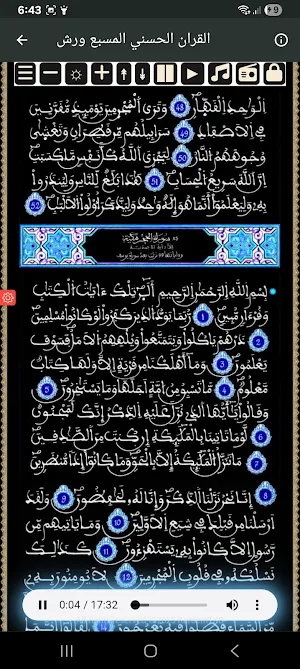 6:43
9
القران الحسني المسبع ورش
الْوَاحِدِ الْقَهَّارِ 48 وَتَرَى الْمُجْرِمِينَ يَوْمَئِذٍ مُّقَرَّنِينَ
فِي الْأَصْفَادِ 49 سَرَابِيلُهُم مِّن قَطِرَانٍ وَتَغْشَى
وُجُوهَهُمُ النَّارُ 50 لِيَجْزِيَ اللَّهُ كُلَّ نَفْسٍ مَّا كَسَبَتْ
إِنَّ اللَّهَ سَرِيعُ الْحِسَابِ 51 هَذَا بَلَاغٌ لِّلنَّاسِ وَلِيُنذَرُوا
بِهِ وَلِيَعْلَمُوا أَنَّمَا هُوَ إِلَهٌ وَاحِدٌ وَلِيَذَّكَّرَ أُولُوا الْأَلْبَابِ 52
بِسْمِ اللَّهِ الرَّحْمَنِ الرَّحِيمِ أَلَر تِلْكَ ءَايَاتُ الْكِتَابِ
وَقُرْءَانٍ مُّبِينٍ 1 رُّبَمَا يَوَدُّ الَّذِينَ كَفَرُوا لَوْ كَانُوا مُسْلِمِينَ
2 ذَرْهُمْ يَاكُلُوا وَيَتَمَتَّعُوا وَيُلْهِهِمُ الْأَمَلُ فَسَوْفَ
يَعْلَمُونَ 3 وَمَا أَهْلَكْنَا مِن قَرْيَةٍ إِلَّا وَلَهَا كِتَابٌ
مَّعْلُومٌ 4 مَّا تَسْبِقُ مِنْ أُمَّةٍ أَجَلَهَا وَمَا يَسْتَاخِرُونَ 5
وَقَالُوا يَا أَيُّهَا الَّذِي نُزِّلَ عَلَيْهِ الذِّكْرُ إِنَّكَ لَمَجْنُونٌ
6 لَّوْ مَا تَاتِينَا بِالْمَلَائِكَةِ إِن كُنتَ مِنَ الصَّادِقِينَ
7 مَا تَنَزَّلُ الْمَلَائِكَةُ إِلَّا بِالْحَقِّ وَمَا كَانُوا إِذًا مُّنظَرِينَ
8 إِنَّا نَحْنُ نَزَّلْنَا الذِّكْرَ وَإِنَّا لَهُ لَحَافِظُونَ 9 وَلَقَدْ
أَرْسَلْنَا مِن قَبْلِكَ فِي شِيَعِ الْأَوَّلِينَ 10 وَمَا يَاتِيهِم مِّن
رَّسُولٍ إِلَّا كَانُوا بِهِ يَسْتَهْزِءُونَ 11 كَذَلِكَ
نَسْلُكُهُ فِي قُلُوبِ الْمُجْرِمِينَ 12 لَا يُومِنُونَ بِهِ
0:04 / 17:32